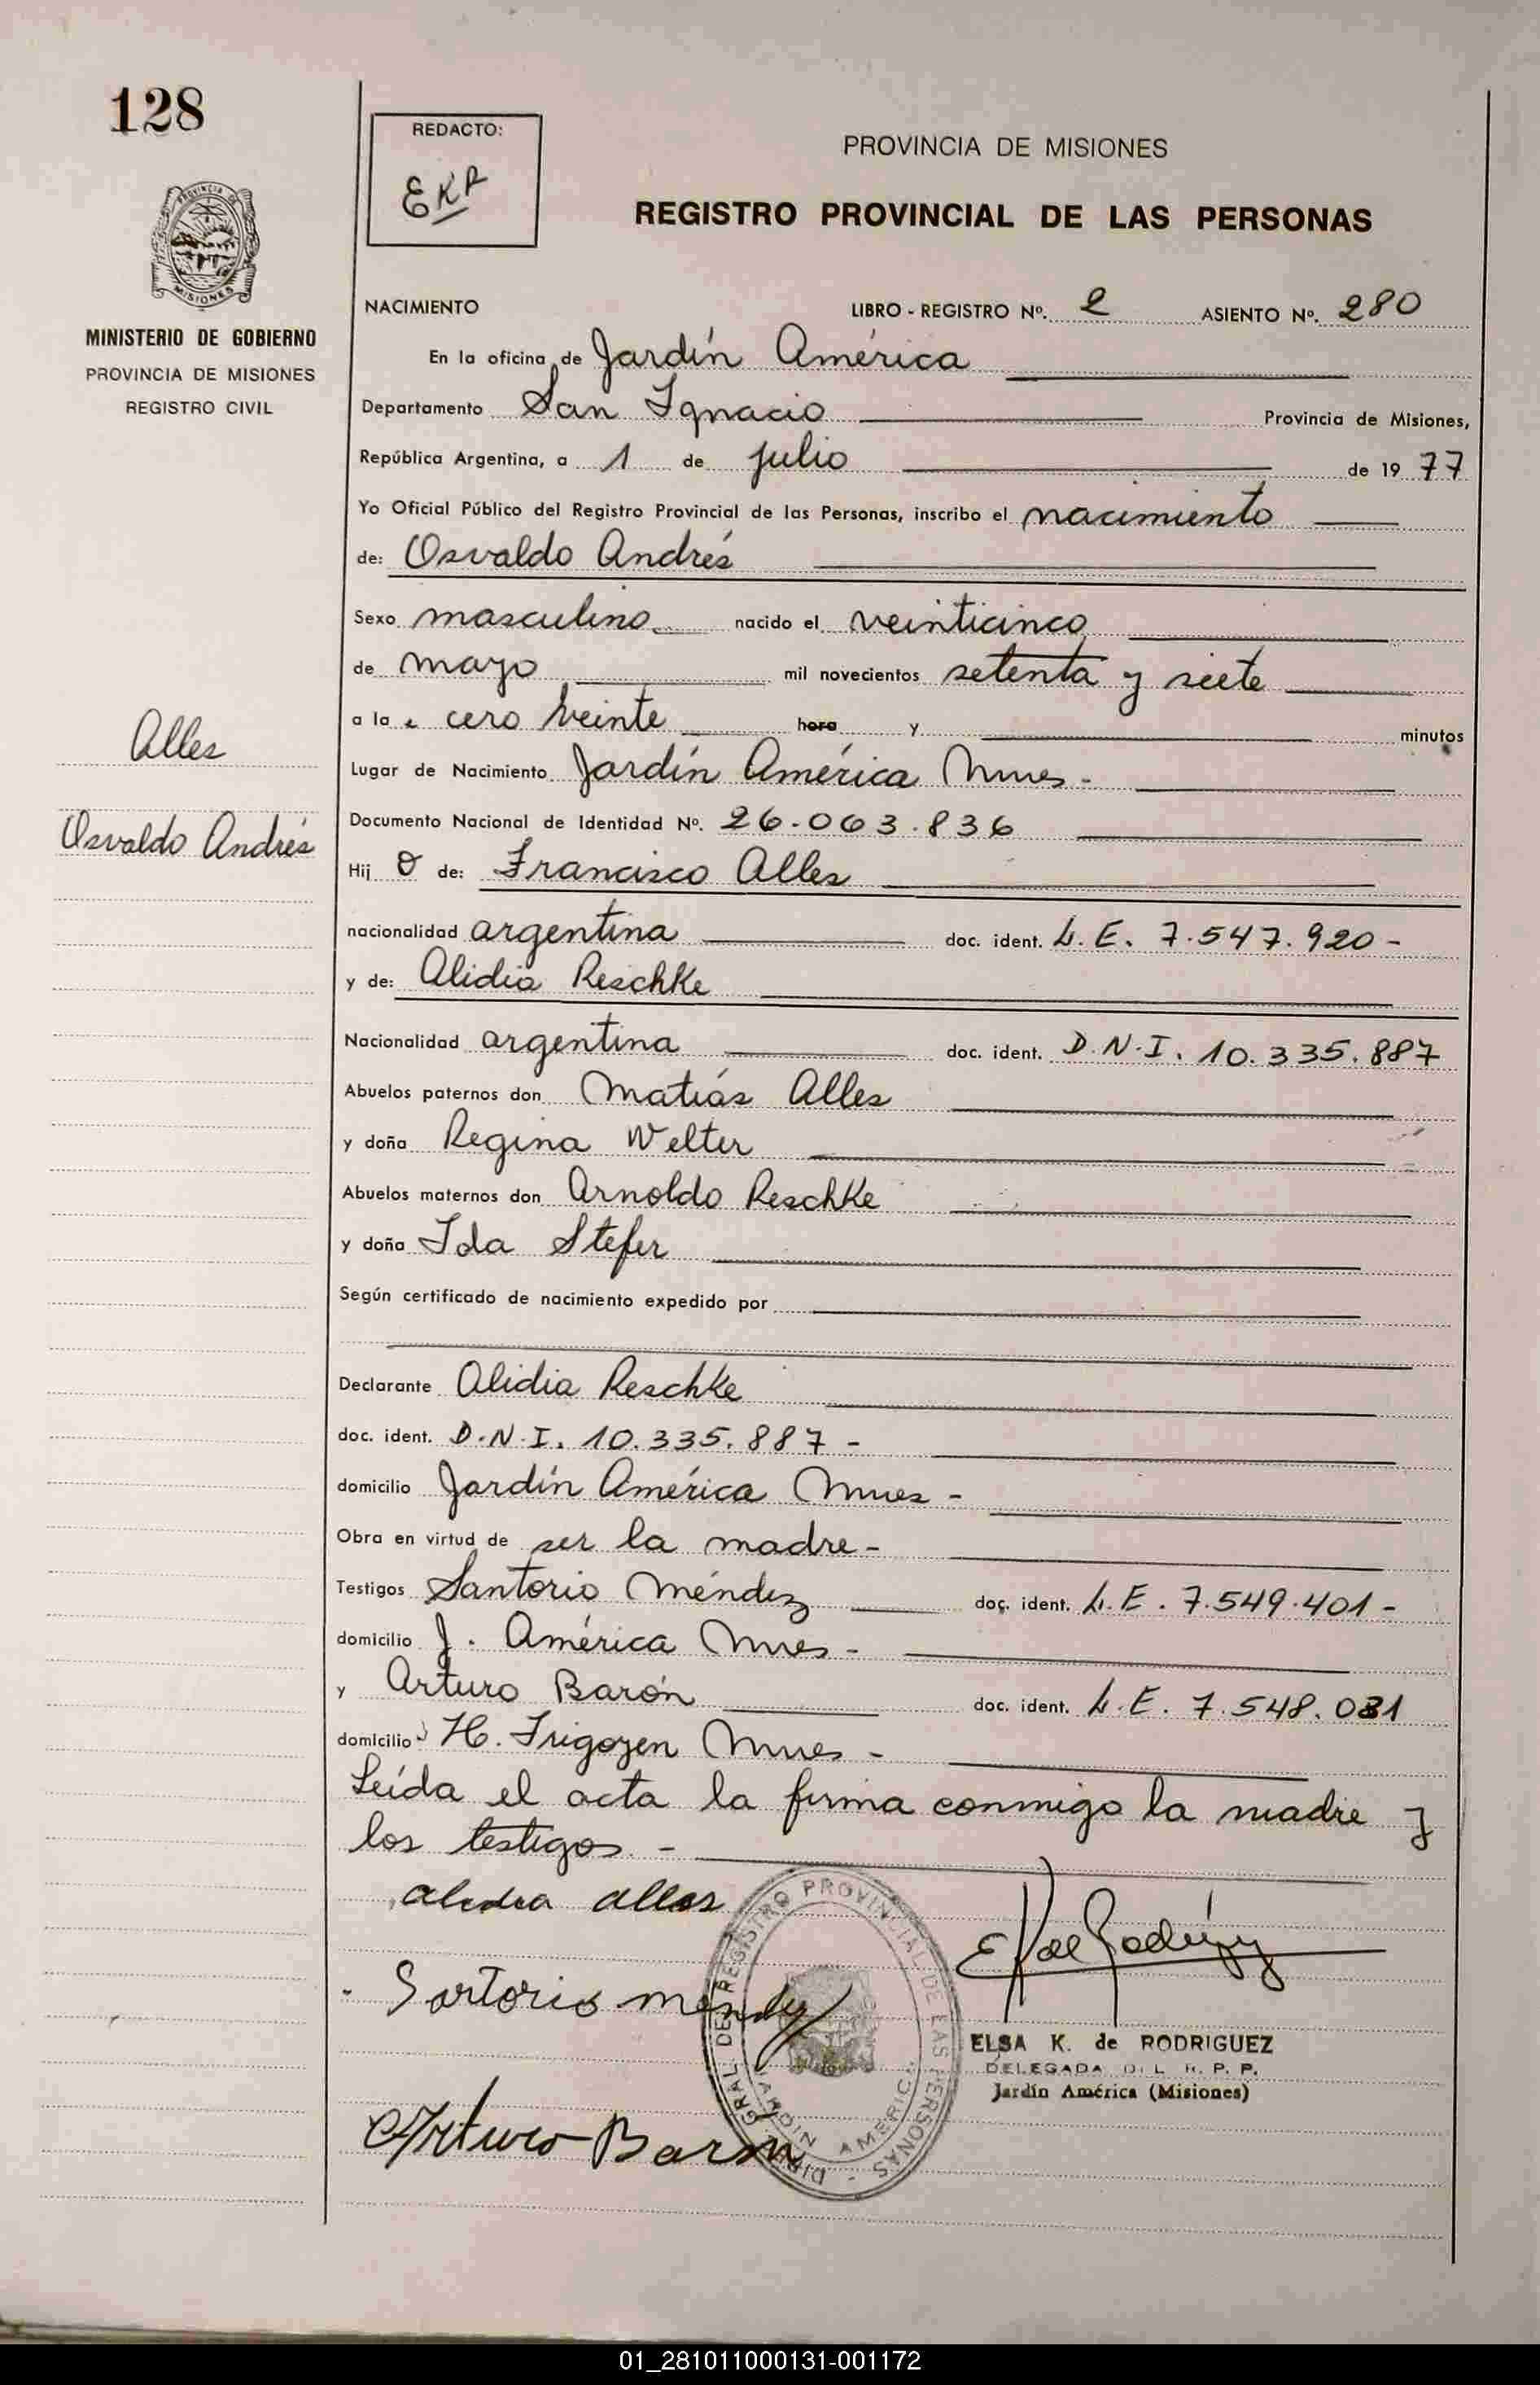 128
REDACTO:
EKR
PROVINCIA DE MISIONES
REGISTRO PROVINCIAL DE LAS PERSONAS
PROVINCIA DE
MISIONES
MINISTERIO DE GOBIERNO
PROVINCIA DE MISIONES
REGISTRO CIVIL
NACIMIENTO LIBRO - REGISTRO Nº. 2 ASIENTO Nº. 280
En la oficina de Jardín América
Departamento San Ignacio Provincia de Misiones,
República Argentina, a 1 de julio de 1977
Yo Oficial Público del Registro Provincial de las Personas, inscribo el nacimiento
de: Osvaldo Andrés
Sexo masculino nacido el veinticinco
de mayo mil novecientos setenta y siete
a la s cero veinte hora y minutos
Alles
Lugar de Nacimiento Jardín América Mnes -
Documento Nacional de Identidad Nº. 26.063.836
Osvaldo Andrés
Hij o de: Francisco Alles
nacionalidad argentina doc. ident. L. E. 7.547.920 -
y de: Alidia Reschke
Nacionalidad argentina doc. ident. D.N.I. 10.335.887
Abuelos paternos don Matías Alles
y doña Regina Welter
Abuelos maternos don Arnoldo Reschke
y doña Ida Stefer
Según certificado de nacimiento expedido por
Declarante Alidia Reschke
doc. ident. D.N.I. 10.335.887 -
domicilio Jardín América Mnes -
Obra en virtud de ser la madre -
Testigos Santorio Méndez doc. ident. L.E. 7.549.401 -
domicilio J. América Mnes -
y Arturo Barón doc. ident. L.E. 7.548.031
domicilio H. Irigoyen Mnes -
Leída el acta la firma conmigo la madre y
los testigos. -
alidia alles
Sartorio mendez
Arturo Baron
DIREC. GRAL DEL REGISTRO PROVINCIAL DE LAS PERSONAS -
JARDIN AMERICA
E K de Rodríguez
ELSA K. de RODRIGUEZ
DELEGADA DEL R. P. P.
Jardín América (Misiones)
01_281011000131-001172